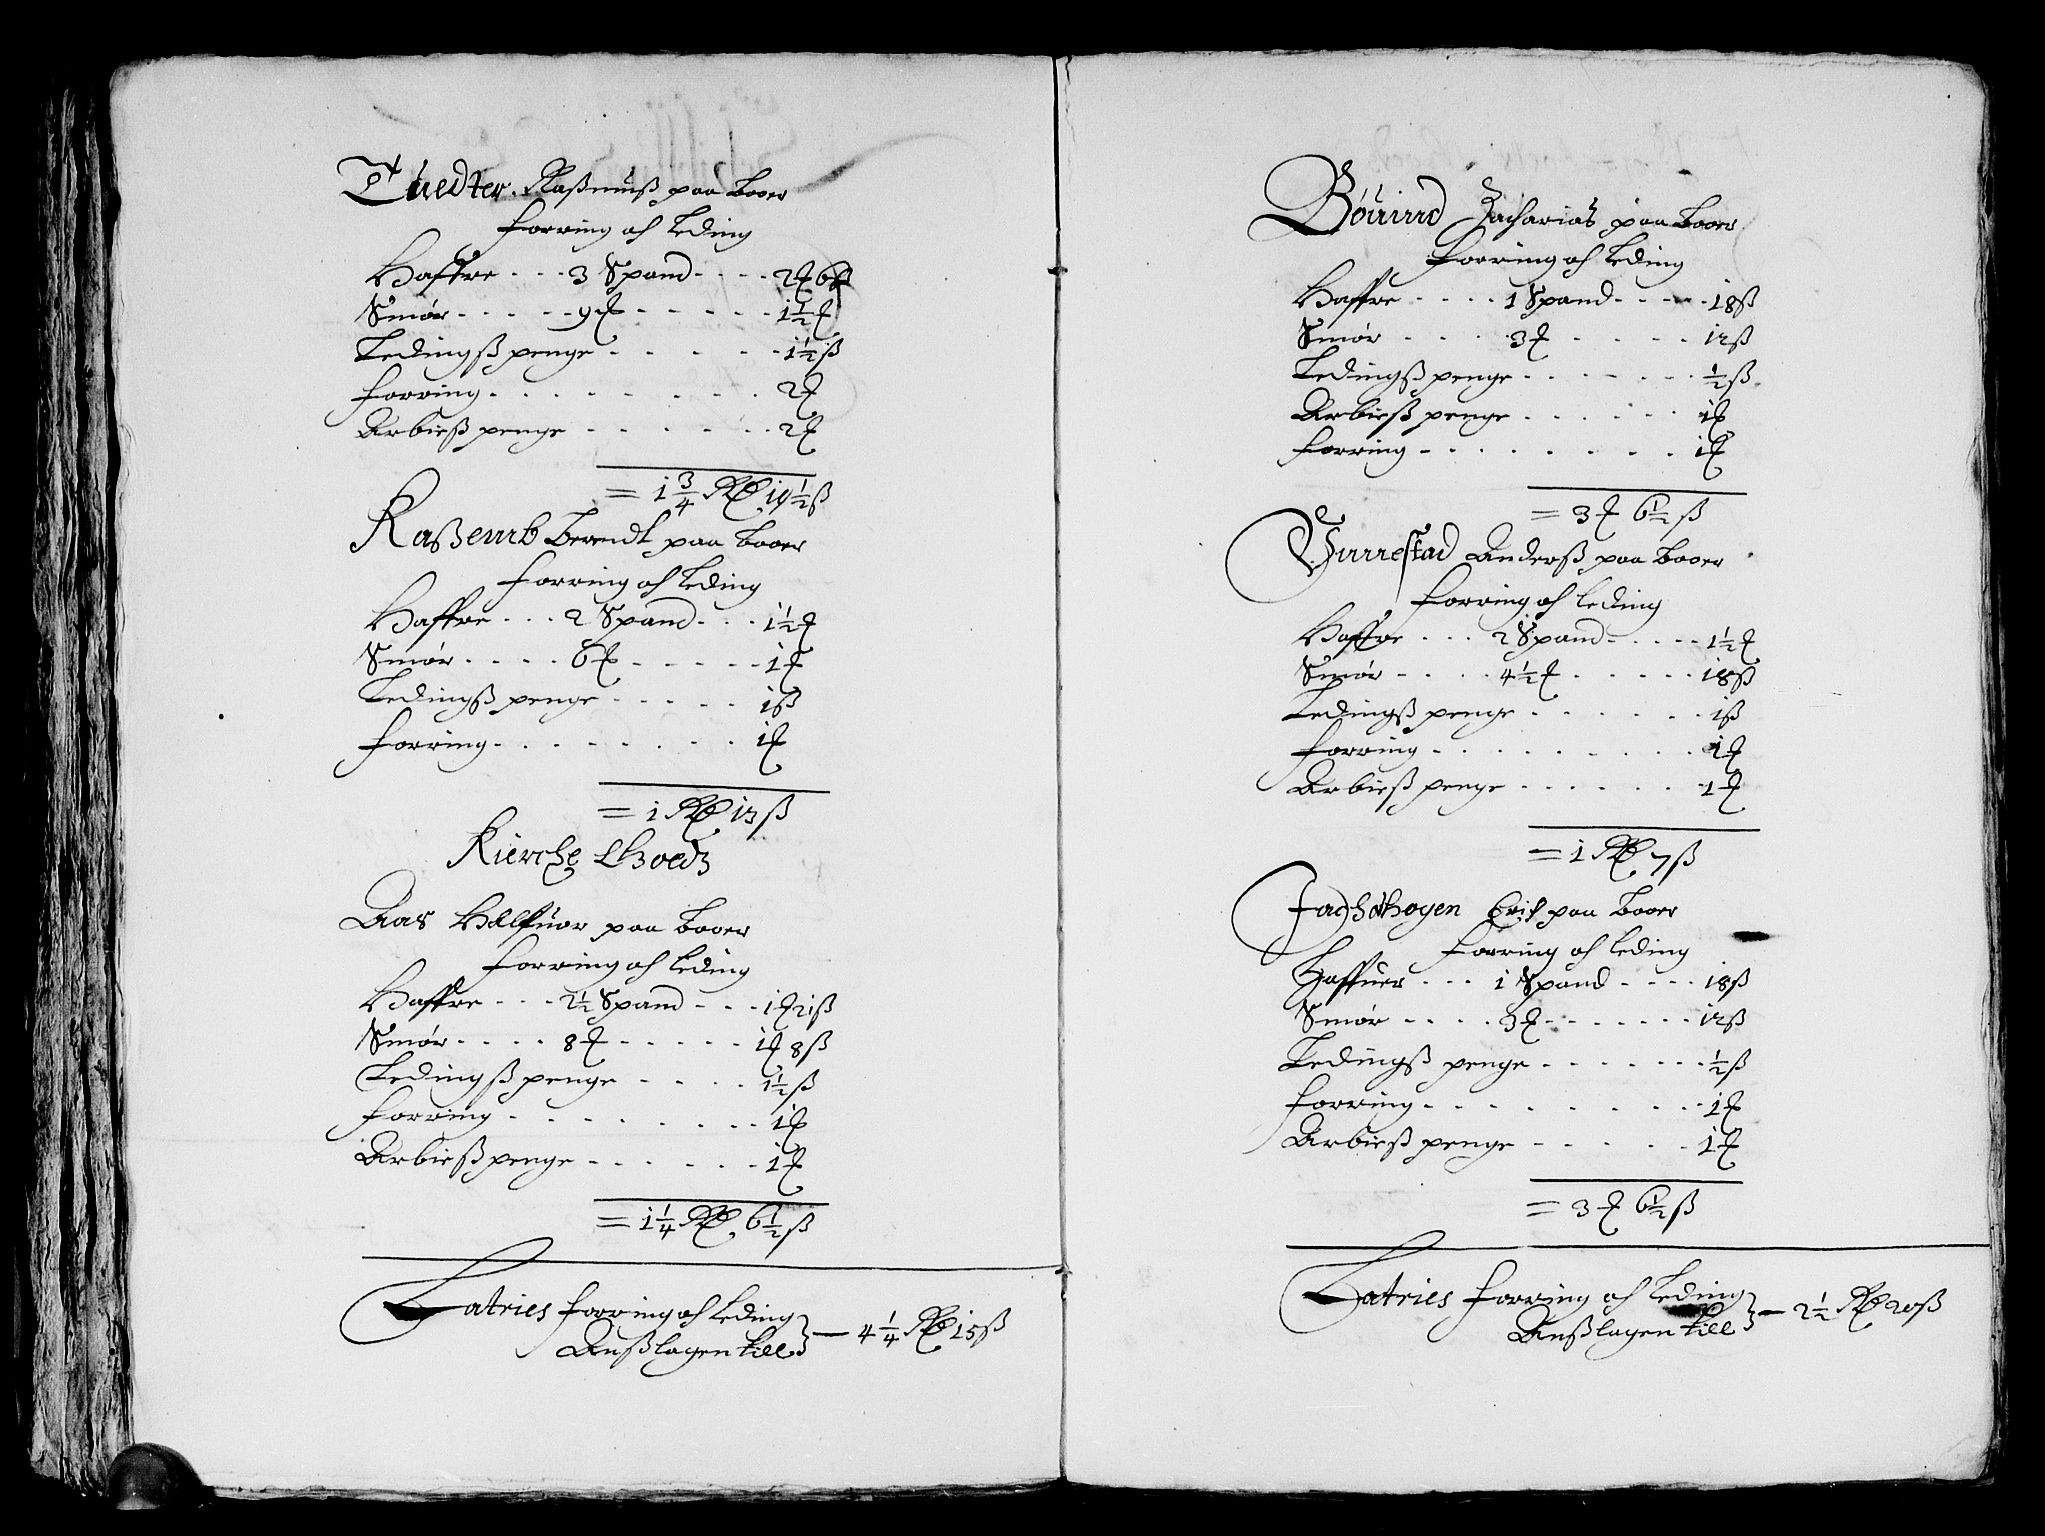 Tuedter. Raßmuß paa booer
Forring oc Leding
Haffre - - - 3 Spand - - - - 2 ₻ 6 ß
Smør - - - - - 9 ₻ - - - - - - 1½ ₻
Ledingß penge - - - - - - 1½ ß
Forring - - - - - - - - - 2 ₻
Arbieß penge - - - - - - - 2 ₻
= 1¾ Rd 19½ ß
Raßemb Berendt paa booer
Forring oc Leding
Haffre - - - 2 Spand - - - 1½ ₻
Smør - - - - 6 ₻ - - - - - 1 ₻
Ledingß penge - - - - - 1 ß
Forring - - - - - - - - - 1 ₻
= 1 Rd 13 ß
Kierche Goedz
Aas Halfuor paa booer
Forring oc Leding
Haffre - - - 2½ Spand - - - 1 ₻ 21 ß
Smør - - - - 8 ₻ - - - - - 1 ₻ 8 ß
Ledingß penge - - - - 1½ ß
Forring - - - - - - - - - 1 ₻
Arbieß penge - - - - - - 1 ₻
= 1¼ Rd 6½ ß
Latries Forring oc Leding
Anßlagen till } — 4¼ Rd 15 ß
Zacharias paa booer
Forring oc Leding
Haffre - - - - 1 Spand - - - - - 18 ß
Smør - - - - 3 ₻ - - - - - 12 ß
Ledingß penge - - - - - - ½ ß
Arbieß penge - - - - - - 1 ₻
Forring - - - - - - - - - 1 ₻
= 3 ₻ 6½ ß
Virrestad Anderß paa booer
Forring oc Leding
Haffre - - - 2 Spand - - - - - 1½ ₻
Smør - - - - 4½ ₻ - - - - - - 18 ß
Ledingß penge - - - - - - 1 ß
Forring - - - - - - - - - 1 ₻
Arbieß penge - - - - - - - 1 ₻
= 1 Rd 7 ß
Erich paa booer
Forring oc Leding
Haffuer - - - 1 Spand - - - - 18 ß
Smør - - - - 3 ₻ - - - - - - - 12 ß
Ledingß penge - - - - - - - ½ ß
Forring - - - - - - - - - 1 ₻
Arbieß penge - - - - - - 1 ₻
= 3 ₻ 6½ ß
Latries Forring oc Leding
Anßlagen till } — 2½ Rd 20 ß